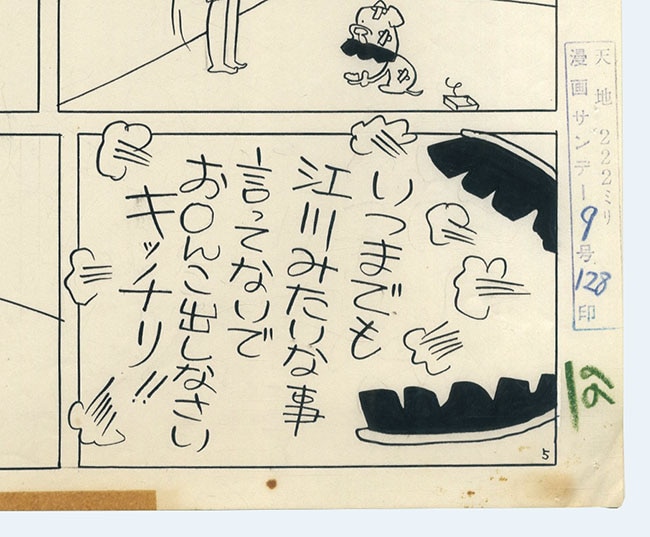 いつまでも
江川みたいな事
言ってないで
お〇んこ出しなさい
キッナリ!!
5
天地222ミリ
漫画サンデー9号128印
199